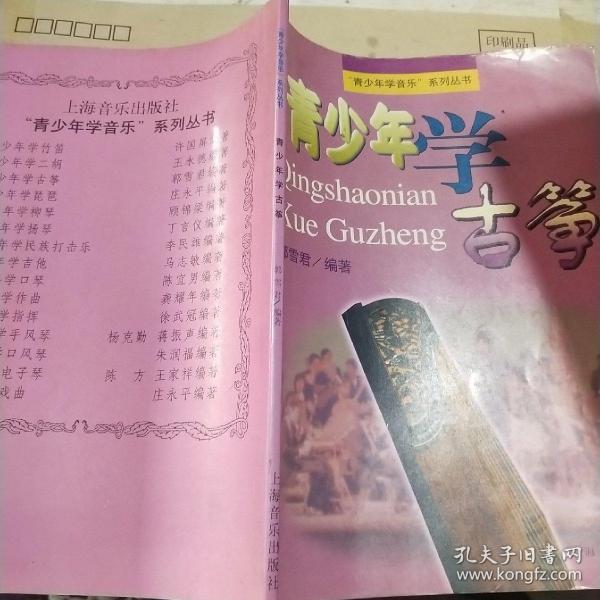 印刷品
上海音乐出版社
“青少年学音乐”系列丛书
少年学竹笛 许国屏编著
少年学二胡 王永德编著
少年学古筝 郭雪君编著
少年学琵琶 庄永平编著
年学柳琴 顾锦梁编著
年学扬琴 丁言仪编著
年学民族打击乐 李民雄编著
年学吉他 马志敏编著
学口琴 陈宜男编著
学作曲 龚耀年编著
学指挥 徐武冠编著
学手风琴 杨克勤 蒋振声编著
学口风琴 朱润福编著
电子琴 陈方 王家祥编著
戏曲 庄永平编著
“青少年学音乐”系列丛书
青少年学古筝
郭雪君/编著
上海音乐出版社
“青少年学音乐”系列丛书
青少年学
古筝
Qingshaonian
Xue Guzheng
郭雪君/编著
孔夫子旧书网
www.kongfz.com